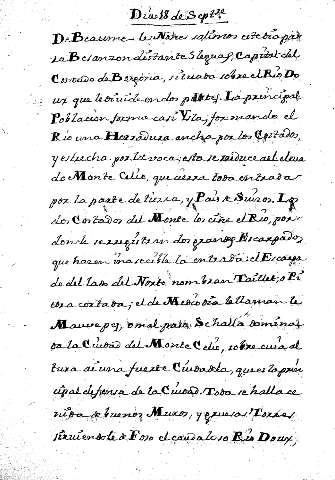 Dia 18 de Septre
De Beaume-les-Nones salimos este dia pa
ra Besanzon distante 5 leguas, Capital del
Condado de Borgoña, situada sobre el Rio Do
ux que le divide en dos partes. La principal
Poblacion forma casi Ysla; formando el
Rio una Herradura ancha por los Costados,
y estrecha por la voca; esta se reduce a el eleva
do Monte Celio, que cierra toda entrada
por la parte de tierra, y Pais de Suizos. Los
dos Costados del Monte los ciñe el Rio, por
donde se registran dos grandes Escarpados
que hacen inaccesible la entrada: el Escarpa
do del lado del Norte nombran Taillet, o Pi
edra cortada; el de Mediodia le llaman le
Mauvepas, o mal paso. Se halla domina
da la Ciudad del Monte Celio, sobre cuia al
tura ai una fuerte Ciudadela, que es la prin
cipal defensa de la Ciudad. Toda se halla ce
ñida de buenos Muros, y gruesas Torres
sirviendole de Foso el caudaloso Rio Doux,